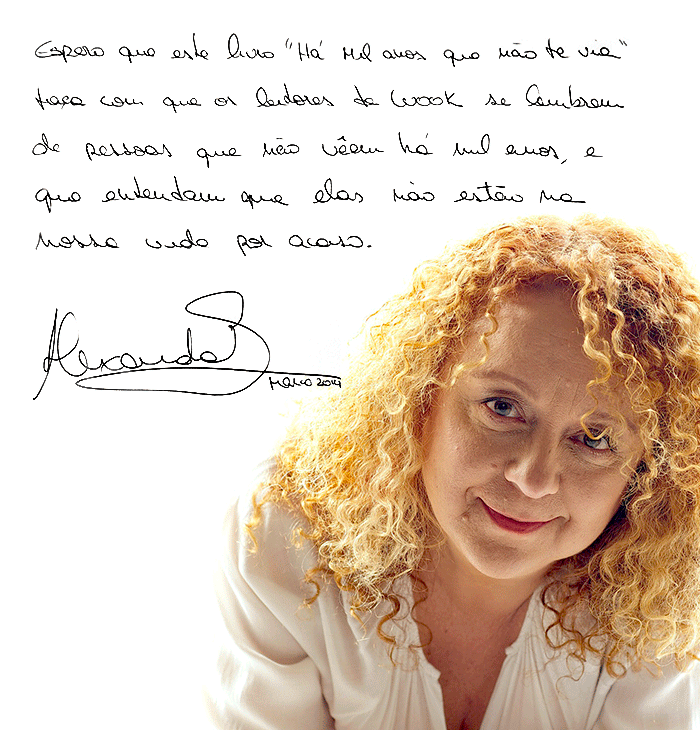 Espero que este livro "Há mil anos que não te via"
faça com que os leitores da WOOK se lembrem
de pessoas que não vêem há mil anos, e
que entendam que elas não estão na
nossa vida por acaso.
Alexandra